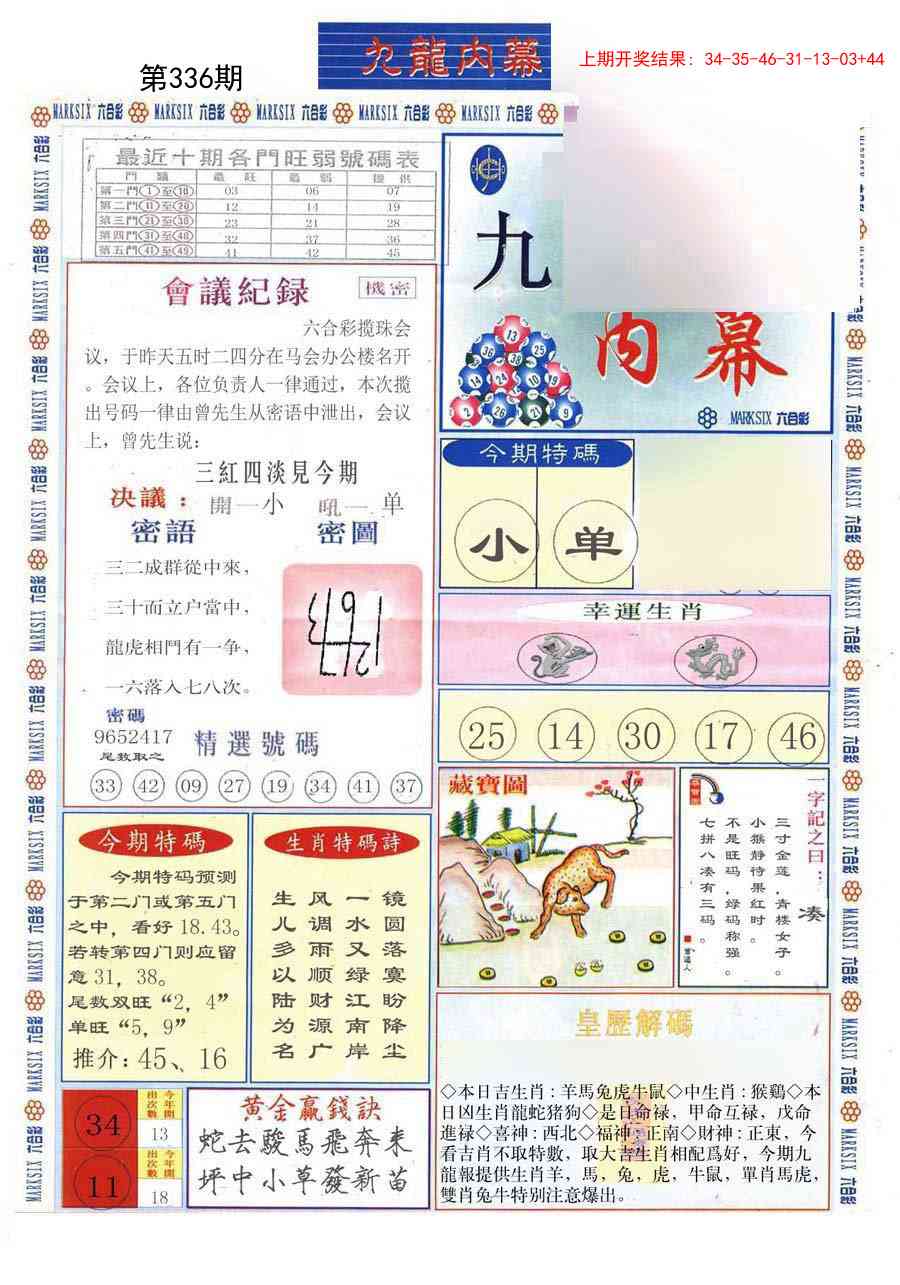 第336期
九龍内幕
上期开奖结果：34-35-46-31-13-03+44
MARKSIX 六合彩
最近十期各門旺弱號碼表
門 類 最 旺 最 弱 提 供
第一門①至⑩ 03 06 07
第二門⑪至⑳ 12 14 19
第三門㉑至㉚ 23 21 28
第四門㉛至㊵ 32 37 36
第五門㊶至㊾ 41 42 45
會議紀録
機密
六合彩搅珠会
议，于昨天五时二四分在马会办公楼名开
。会议上，各位负责人一律通过，本次搅
出号码一律由曾先生从密语中泄出，会议
上，曾先生说：
三紅四淡見今期
决議：開一小 吼一单
密語 密圖
三二成群從中來，
三十面立户當中，
龍虎相鬥有一争，
一六落入七八次。
密碼
9652417
尾数取之
精選號碼
33 42 09 27 19 34 41 37
九
内幕
13
36 38 25
14 24 10 19
2 26 21 9
MARKSIX 六合彩
今期特碼
小 单
幸運生肖
25 14 30 17 46
藏寶圖
一字記之曰：
凑
三寸金莲，青楼女子。
小猴静待果红时。
不是旺码，绿码称强。
七拼八凑有三码。
今期特碼
今期特码预测
于第二门或第五门
之中，看好 18.43。
若转第四门则应留
意 31，38。
尾数双旺“2，4”
单旺“5，9”
推介：45、16
生肖特碼詩
生 风 一 镜
儿 调 水 圆
多 雨 又 落
以 顺 绿 寞
陆 财 江 盼
为 源 南 降
名 广 岸 尘
34
今年開
出次數
13
11
今年開
出次數
18
黄金赢錢訣
蛇去駿馬飛奔来
坪中小草發新苗
皇歷解碼
◇本日吉生肖：羊馬兔虎牛鼠◇中生肖：猴鷄◇本
日凶生肖龍蛇猪狗◇是日命禄，甲命互禄，戊命
進禄◇喜神：西北◇福神：正南◇財神：正東，今
看吉肖不取特數，取大吉生肖相配爲好，今期九
龍報提供生肖羊，馬，兔，虎，牛鼠，單肖馬虎，
雙肖兔牛特别注意爆出。